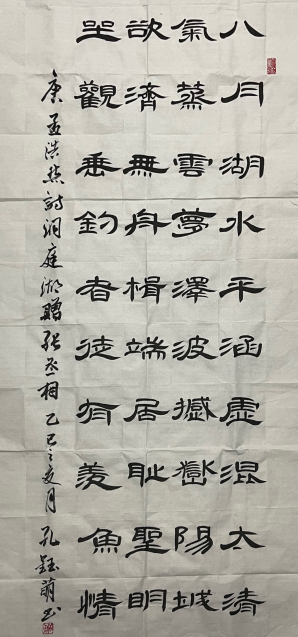 八月湖水平涵虛混太清
氣蒸雲夢澤波撼嶽陽城
欲濟無舟楫端居恥聖明
坐觀垂釣者徒有羨魚情
唐孟浩然詩洞庭湖贈張丞相 乙巳之夏月 孔鈺萌书